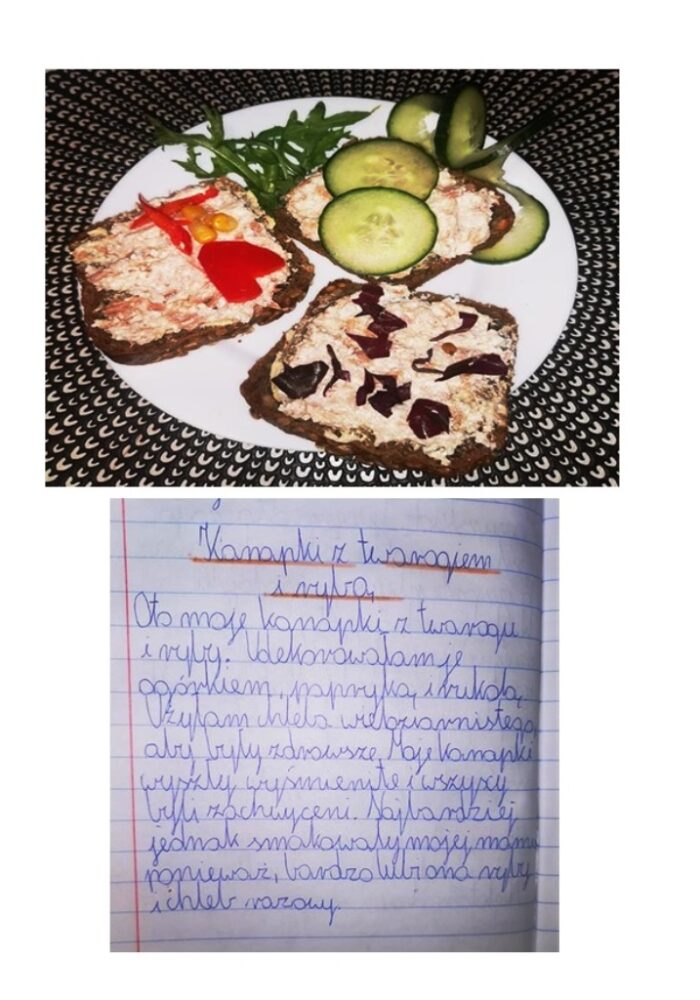 Kanapki z twarogiem
i rybą
Oto moje kanapki z twarogu
i ryby. Udekorowałam je
ogórkiem, papryką i rukolą.
Użyłam chleba wieloziarnistego,
aby były zdrowsze. Moje kanapki
wyszły wyśmienite i wszyscy
byli zachwyceni. Najbardziej
jednak smakowały mojej mamie
ponieważ, bardzo lubi ona ryby
i chleb razowy.